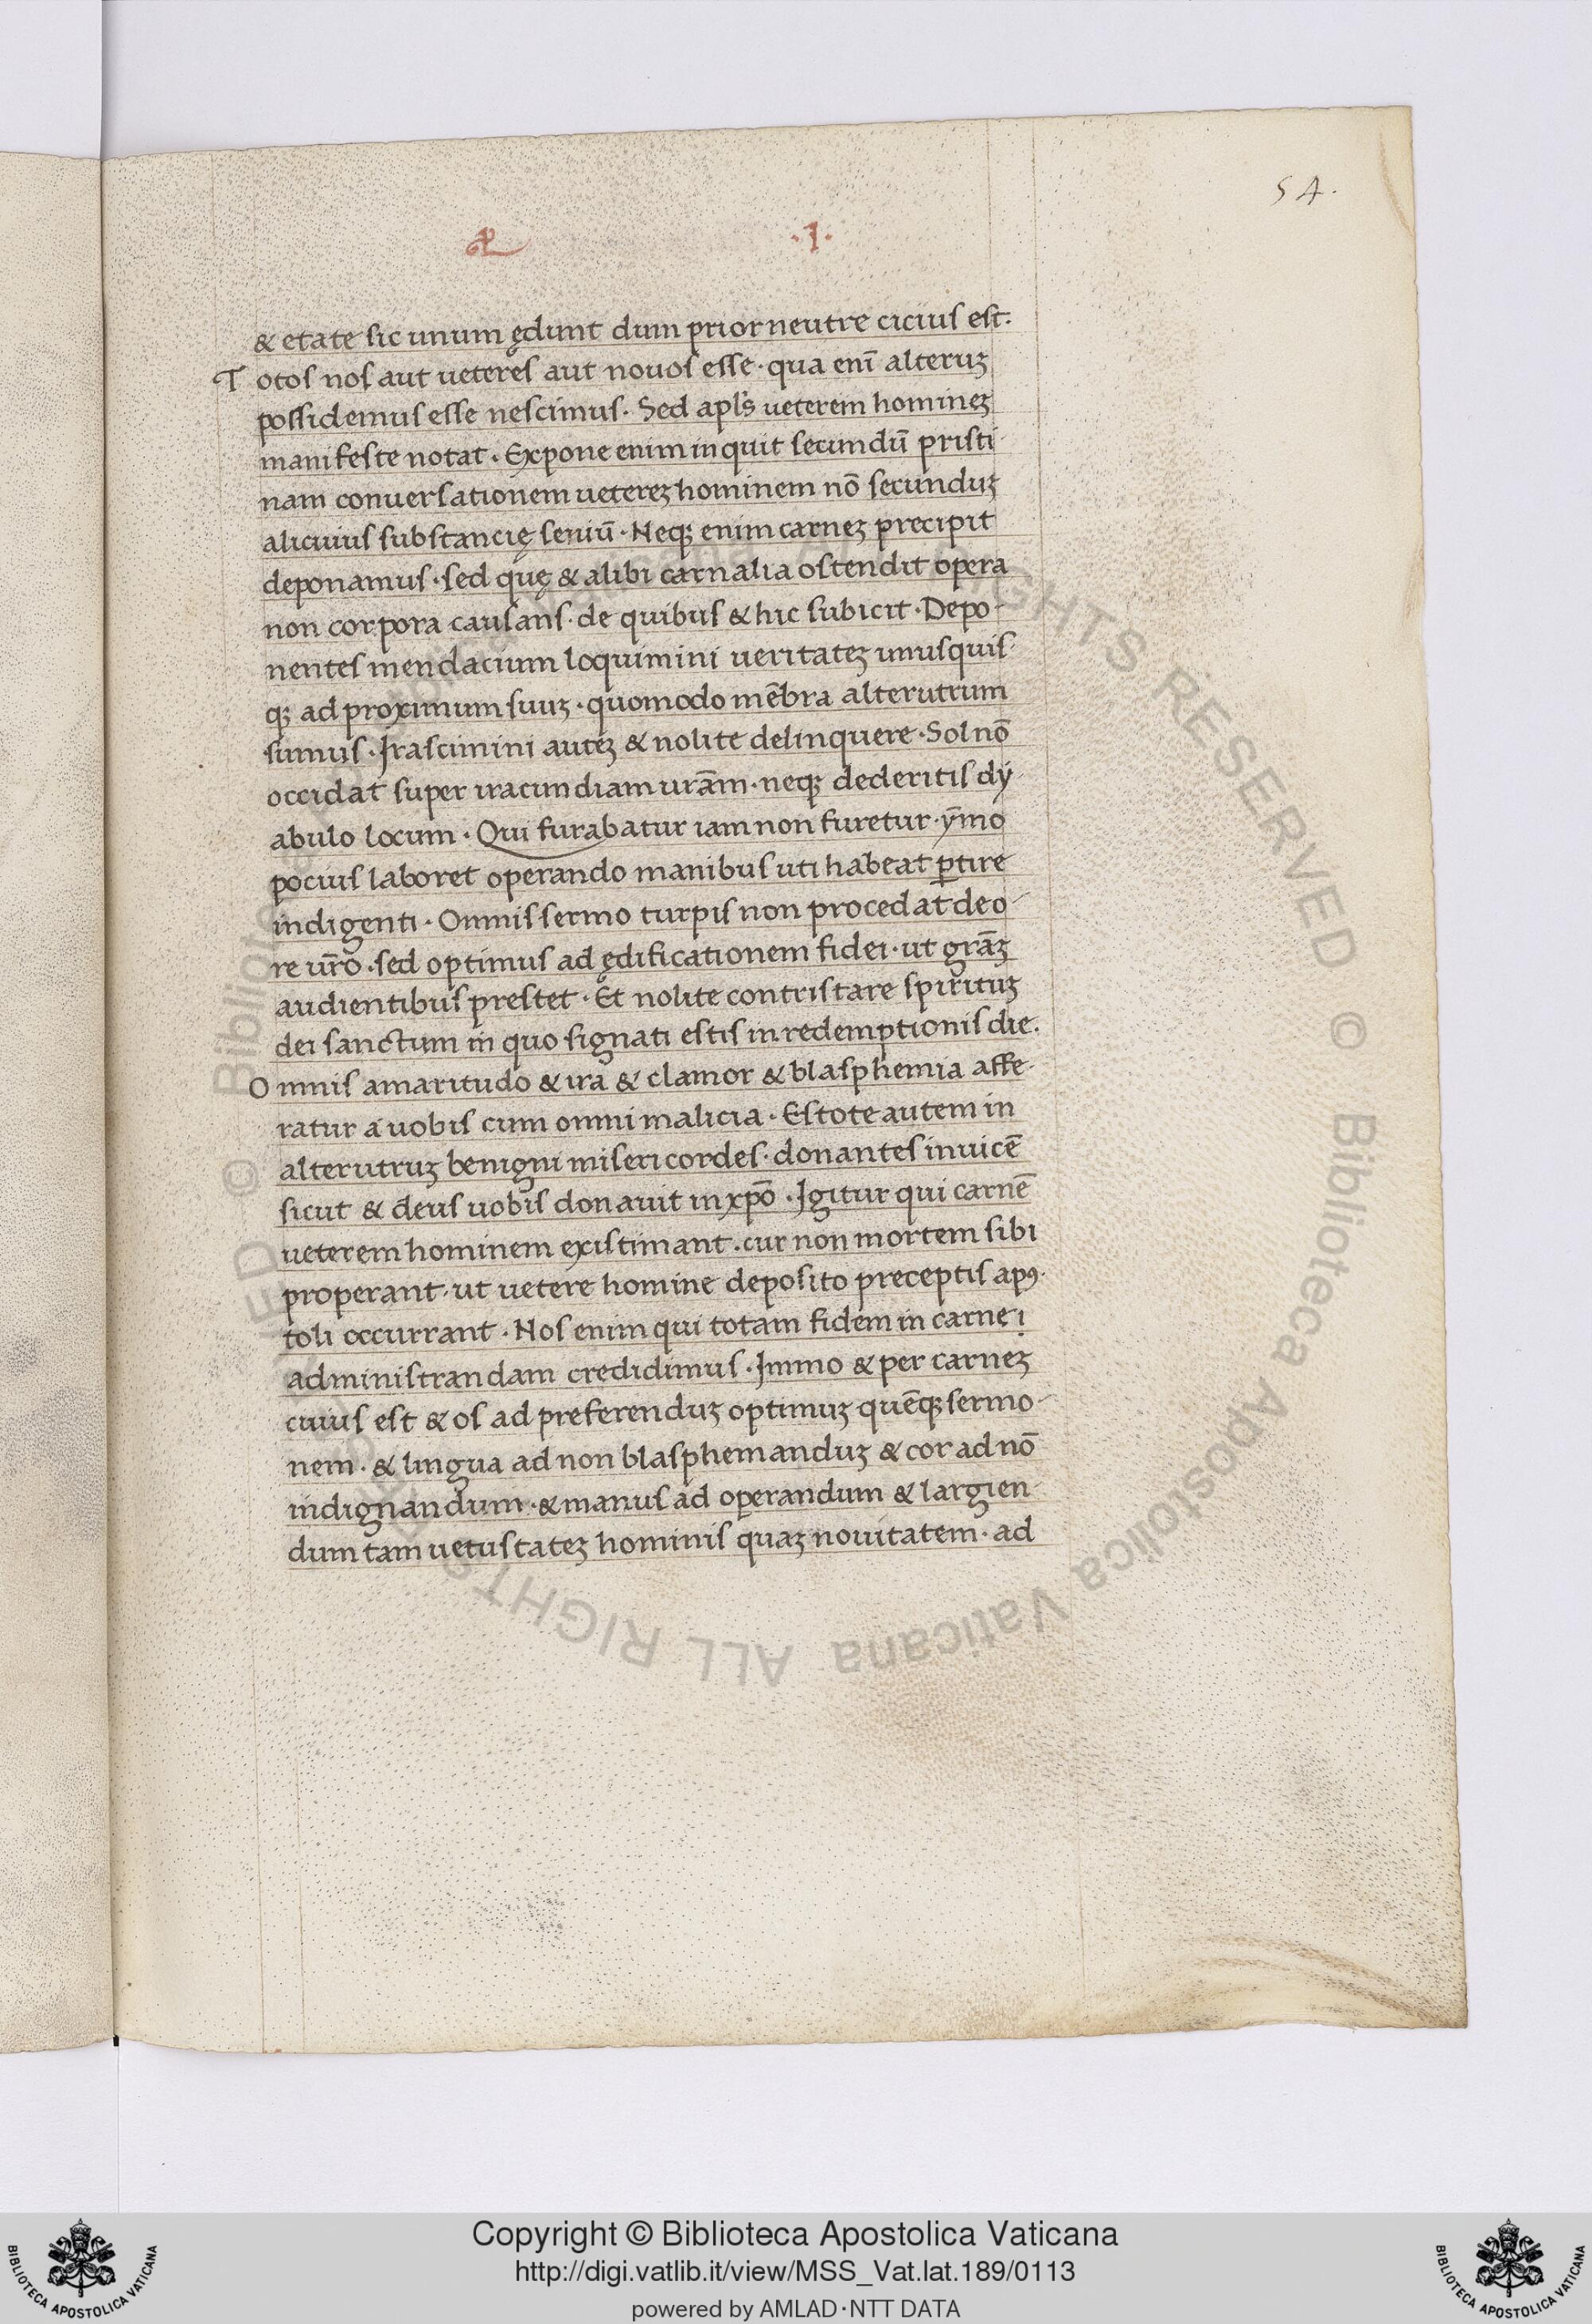 54.
.I.
& etate sic unum ędunt dum prior neutre cicius est.
Totos nos aut ueteres aut nouos esse · qua enī alteruꝫ
possidemus esse nescimus · Sed apls̄ ueterem homineꝫ
manifeste notat · Expone enim inquit secundū pristi-
nam conuersationem uetereꝫ hominem nō secunduꝫ
alicuius substancię seniū · Neqꝫ enim carneꝫ precipit
deponamus · sed quę & alibi carnalia ostendit opera
non corpora causans · de quibus & hic subicit · Depo-
nentes mendacium loquimini ueritateꝫ unusquis-
qꝫ ad proximum suuꝫ · quomodo mēbra alterutrum
sumus · Irascimini auteꝫ & nolite delinquere · Sol nō
occidat super iracundiam urā̄m · neqꝫ dederitis dy-
abulo locum · Qui furabatur iam non furetur · ȳmo
pocius laboret operando manibus uti habeat ꝑtire
indigenti · Omnis sermo turpis non procedat de o-
re ur̄o · sed optimus ad ędificationem fidei · ut grāꝫ
audientibus prestet · Et nolite contristare spirituꝫ
dei sanctum in quo signati estis in redemptionis die.
Omnis amaritudo & ira & clamor & blasphemia affe-
ratur a uobis cum omni malicia · Estote autem in
alterutruꝫ benigni misericordes · donantes inuicē
sicut & deus uobis donauit in xp̄o · Igitur qui carnē
ueterem hominem existimant · cur non mortem sibi
properant · ut uetere homine deposito preceptis apꝯ-
toli occurrant · Nos enim qui totam fidem in carne ị
administrandam credidimus · Immo & per carneꝫ
cuius est & os ad preferenduꝫ optimuꝫ quēqꝫ sermo-
nem · & lingua ad non blasphemanduꝫ & cor ad nō
indignandum · & manus ad operandum & largien-
dum tam uetustateꝫ hominis quaꝫ nouitatem · ad
Copyright © Biblioteca Apostolica Vaticana
http://digi.vatlib.it/view/MSS_Vat.lat.189/0113
powered by AMLAD·NTT DATA
BIBLIOTECA APOSTOLICA VATICANA
BIBLIOTECA APOSTOLICA VATICANA
© Biblioteca Apostolica Vaticana ALL RIGHTS RESERVED
© Biblioteca Apostolica Vaticana ALL RIGHTS RESERVED